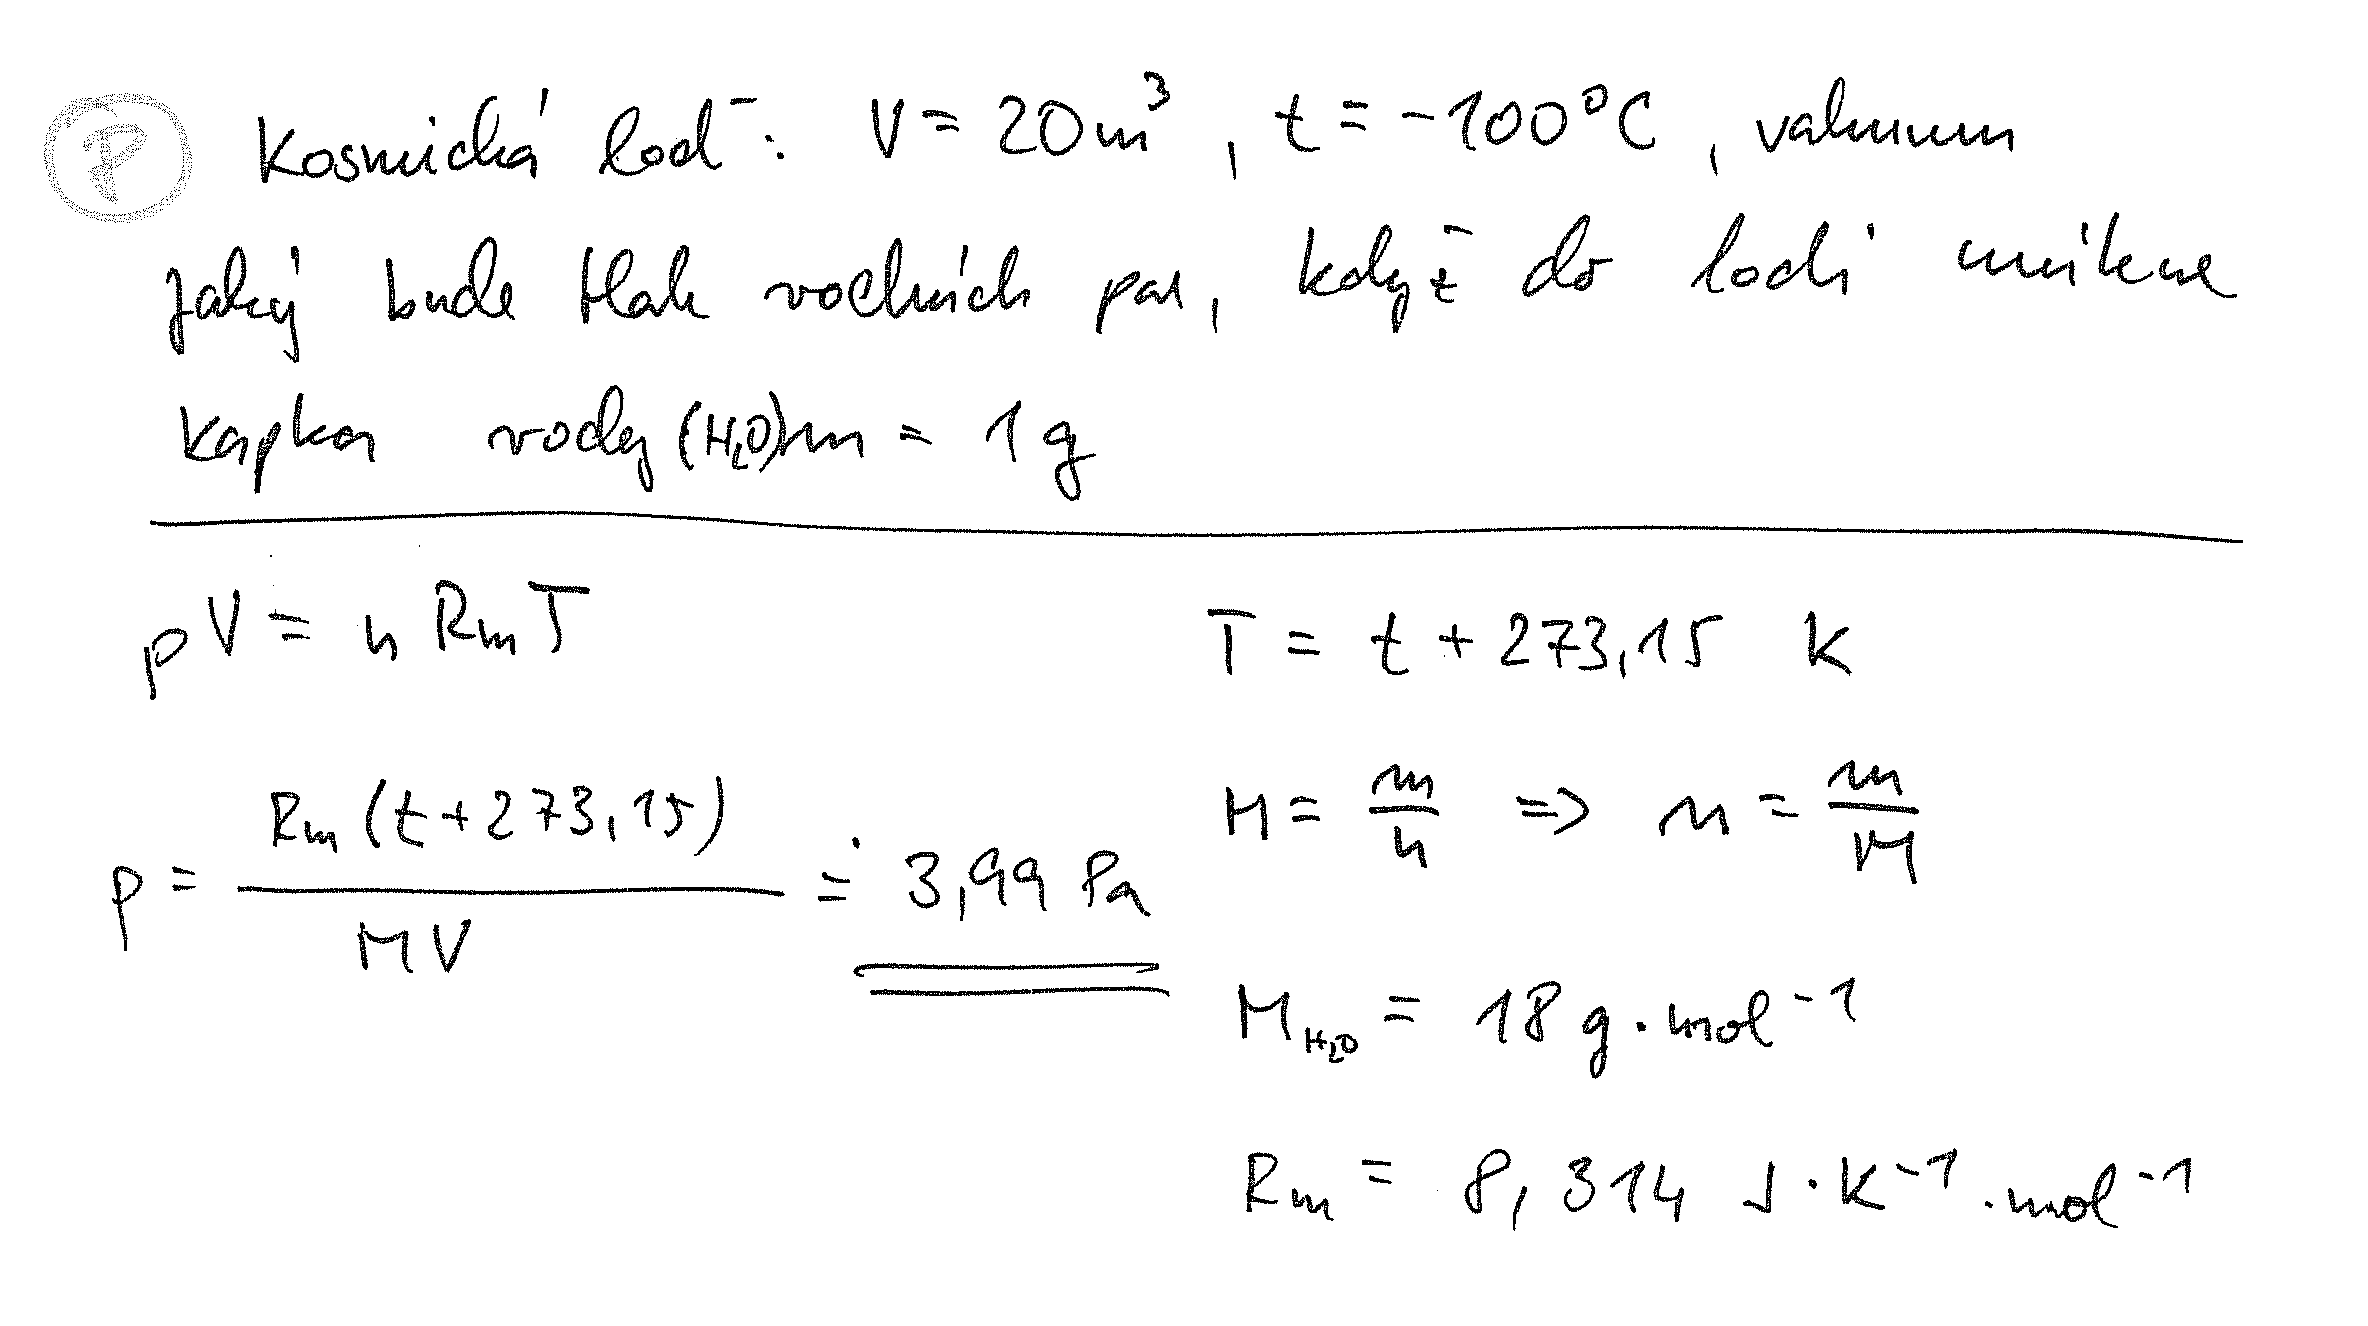 P Kosmická loď: V = 20 m³, t = -100°C, vakuum
Jaký bude tlak vodních par, když do lodi unikne
kapka vody (H₂O) m = 1 g
pV = n Rm T
T = t + 273,15 K
M = m/n => n = m/M
p = Rm (t + 273,15) / MV ≐ 3,99 Pa
M H₂O = 18 g · mol⁻¹
Rm = 8,314 J · K⁻¹ · mol⁻¹